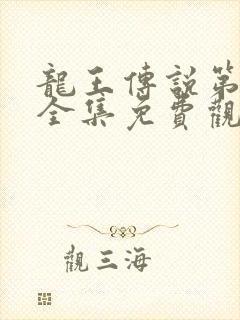 龍王傳說第
全集免費觀
觀三海